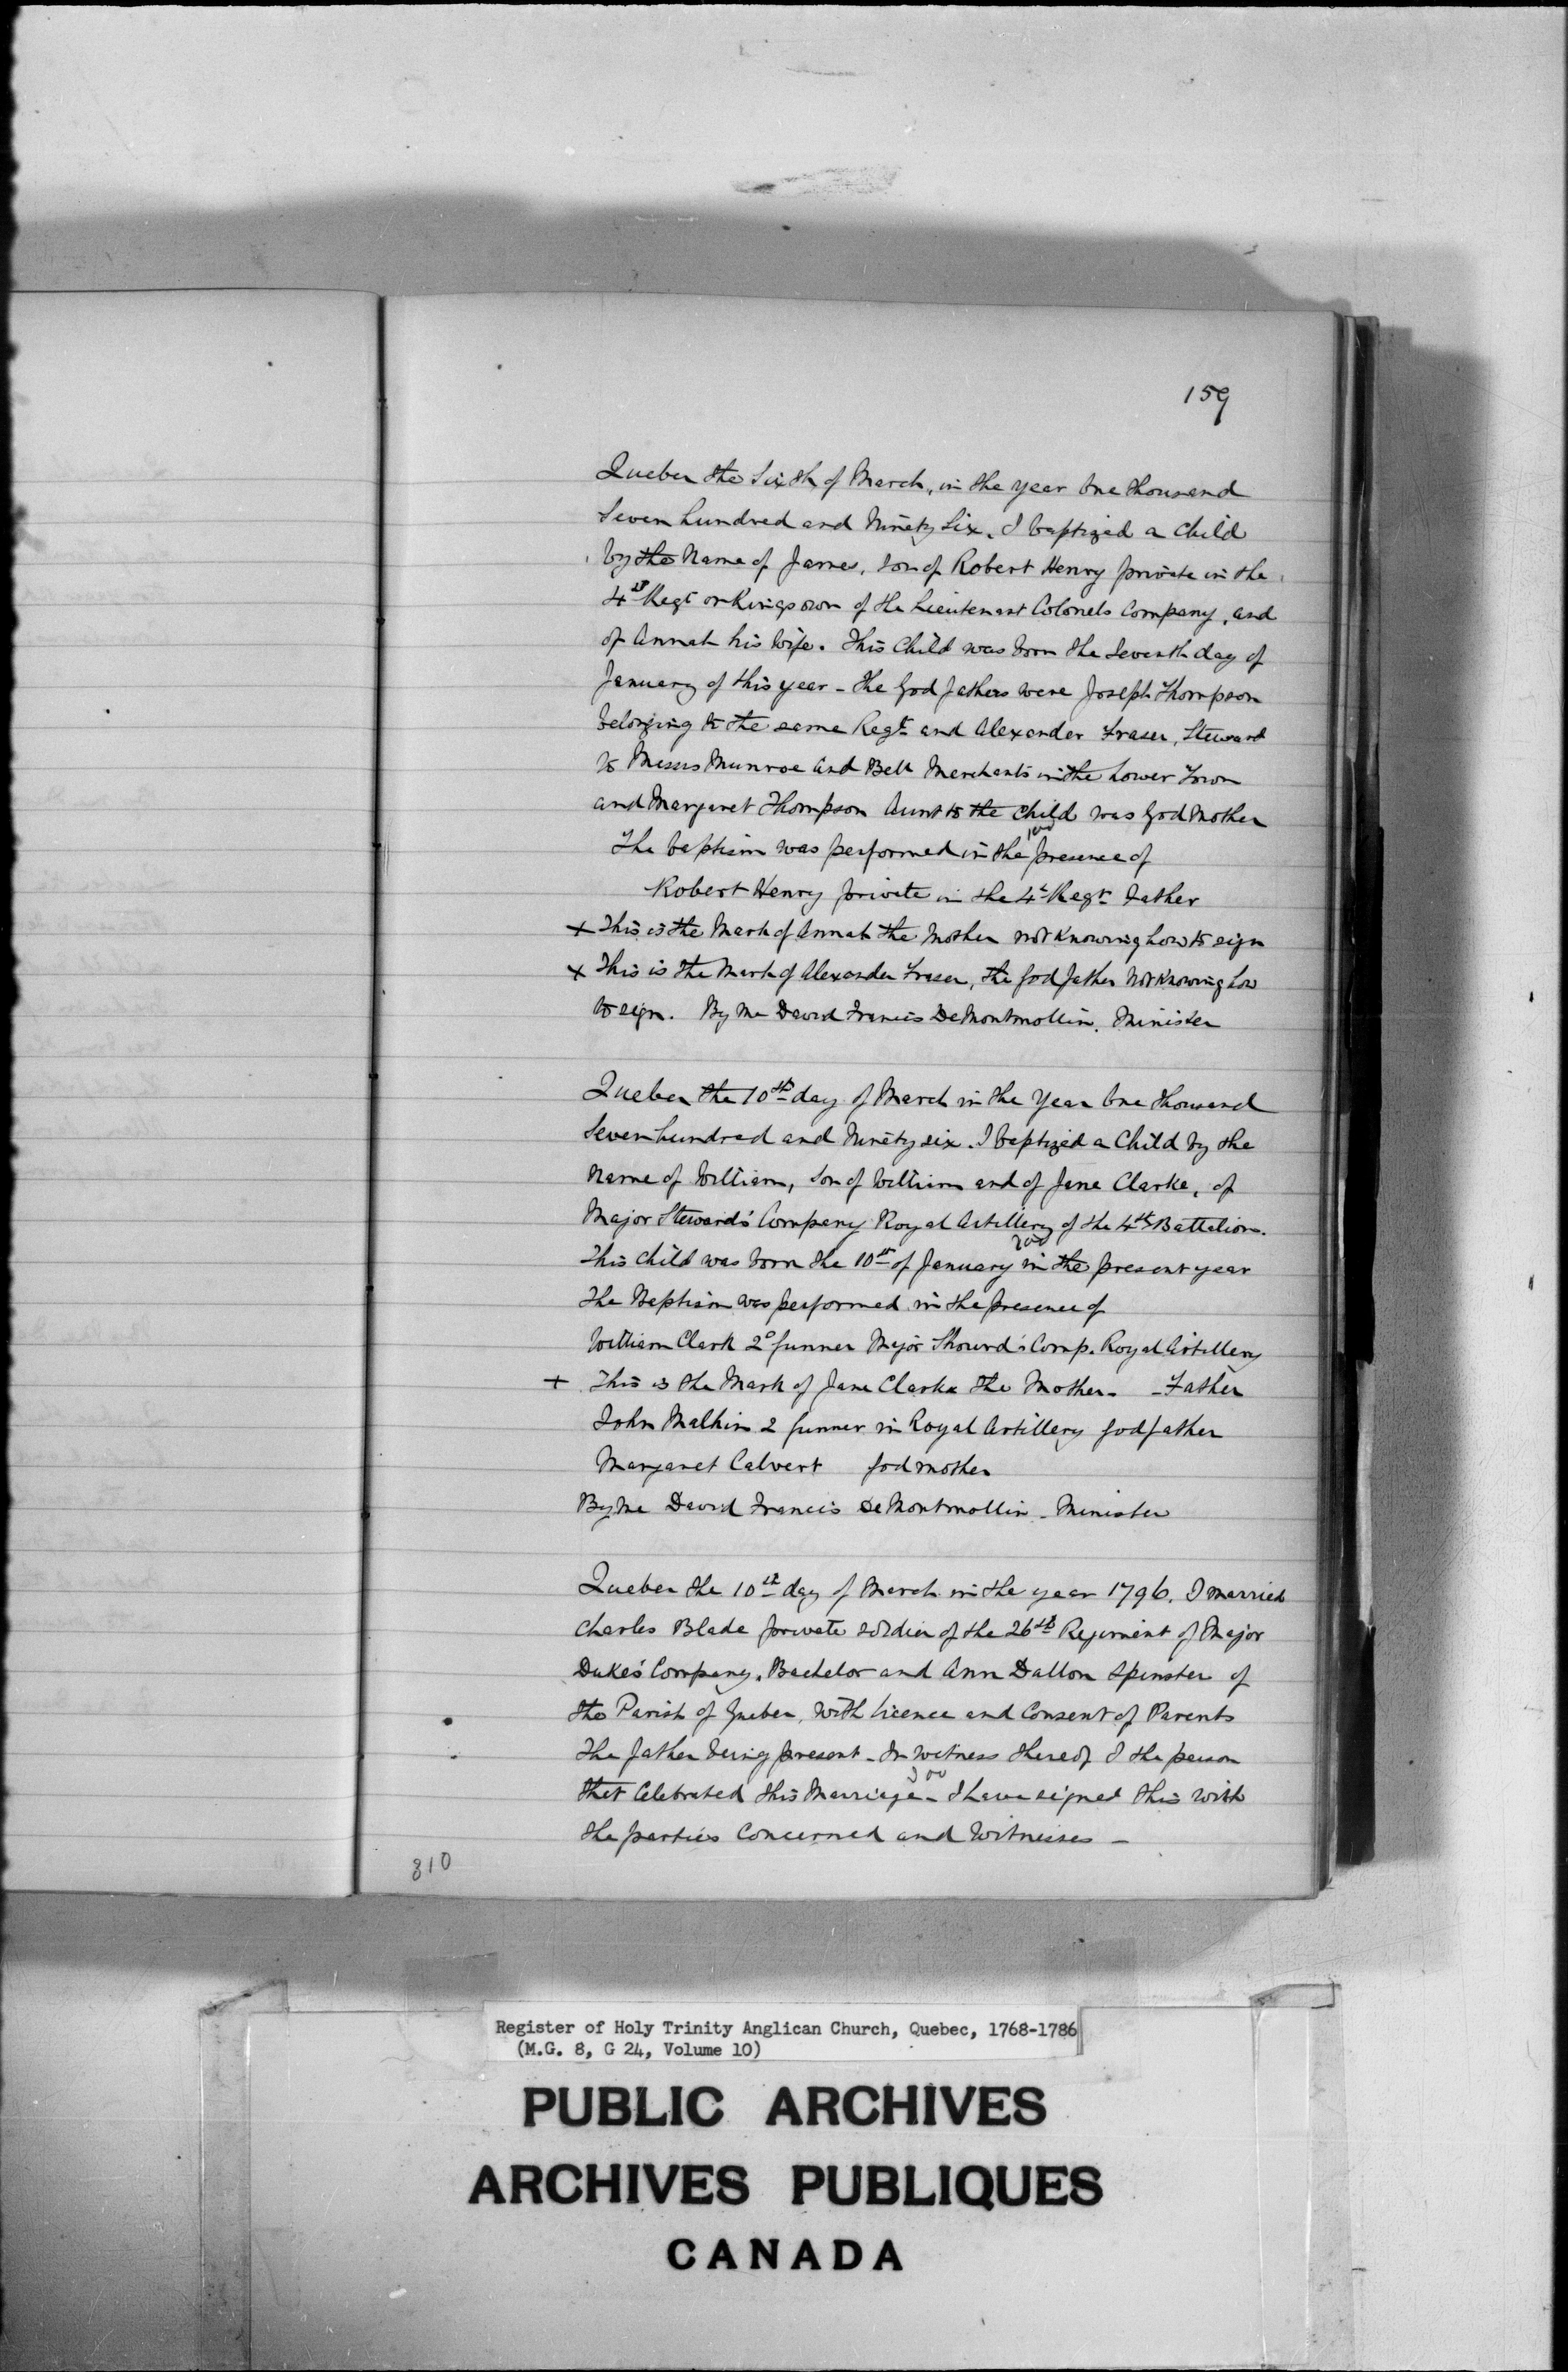 159
Quebec the Sixth of March, in the year One thousand
Seven hundred and Ninety Six. I baptized a Child
by the Name of James, son of Robert Henry private in the
4th Regt or Kings own of the Lieutenant Colonels Company, and
of Annah his Wife. This Child was born the Seventh day of
January of this year - The God fathers were Joseph Thompson
belonging to the same Regt and Alexander Fraser, Steward
to Messrs Munroe and Bell Merchants in the Lower Town
and Margaret Thompson Aunt to the child was God Mother
The baptism was performed in the presence of
Robert Henry private in the 4th Regt Father
+ This is the Mark of Annah the Mother not knowing how to sign
x This is the Mark of Alexander Fraser, the God father Not knowing how
to sign. By Me David Francis DeMontmollin. Minister
Quebec the 10th day of March in the Year One thousand
Seven hundred and Ninety six. I baptized a Child by the
Name of William, Son of William and of Jane Clarke, of
Major Steward's Company Royal Artillery of the 4th Battalion.
This child was born the 10th of January in the present year
The Baptism was performed in the presence of
William Clark 2d Gunner Major Comp. Royal Artillery
+ This is the Mark of Jane Clarke the Mother. - Father
John Malkin 2 Gunner in Royal Artillery Godfather
Margaret Calvert God mother
By Me David Francis DeMontmollin - Minister
Quebec the 10th day of March in the year 1796. I married
Charles Blade private soldier of the 26th Regiment of Major
Duke's Company. Bachelor and Ann Dallon Spinster of
the Parish of Quebec, with licence and Consent of Parents
The father being present - In witness thereof I the person
that Celebrated this Marriage - I have signed this with
the parties Concerned and Witnesses -
310
Register of Holy Trinity Anglican Church, Quebec, 1768-1786
(M.G. 8, G 24, Volume 10)
PUBLIC ARCHIVES
ARCHIVES PUBLIQUES
CANADA